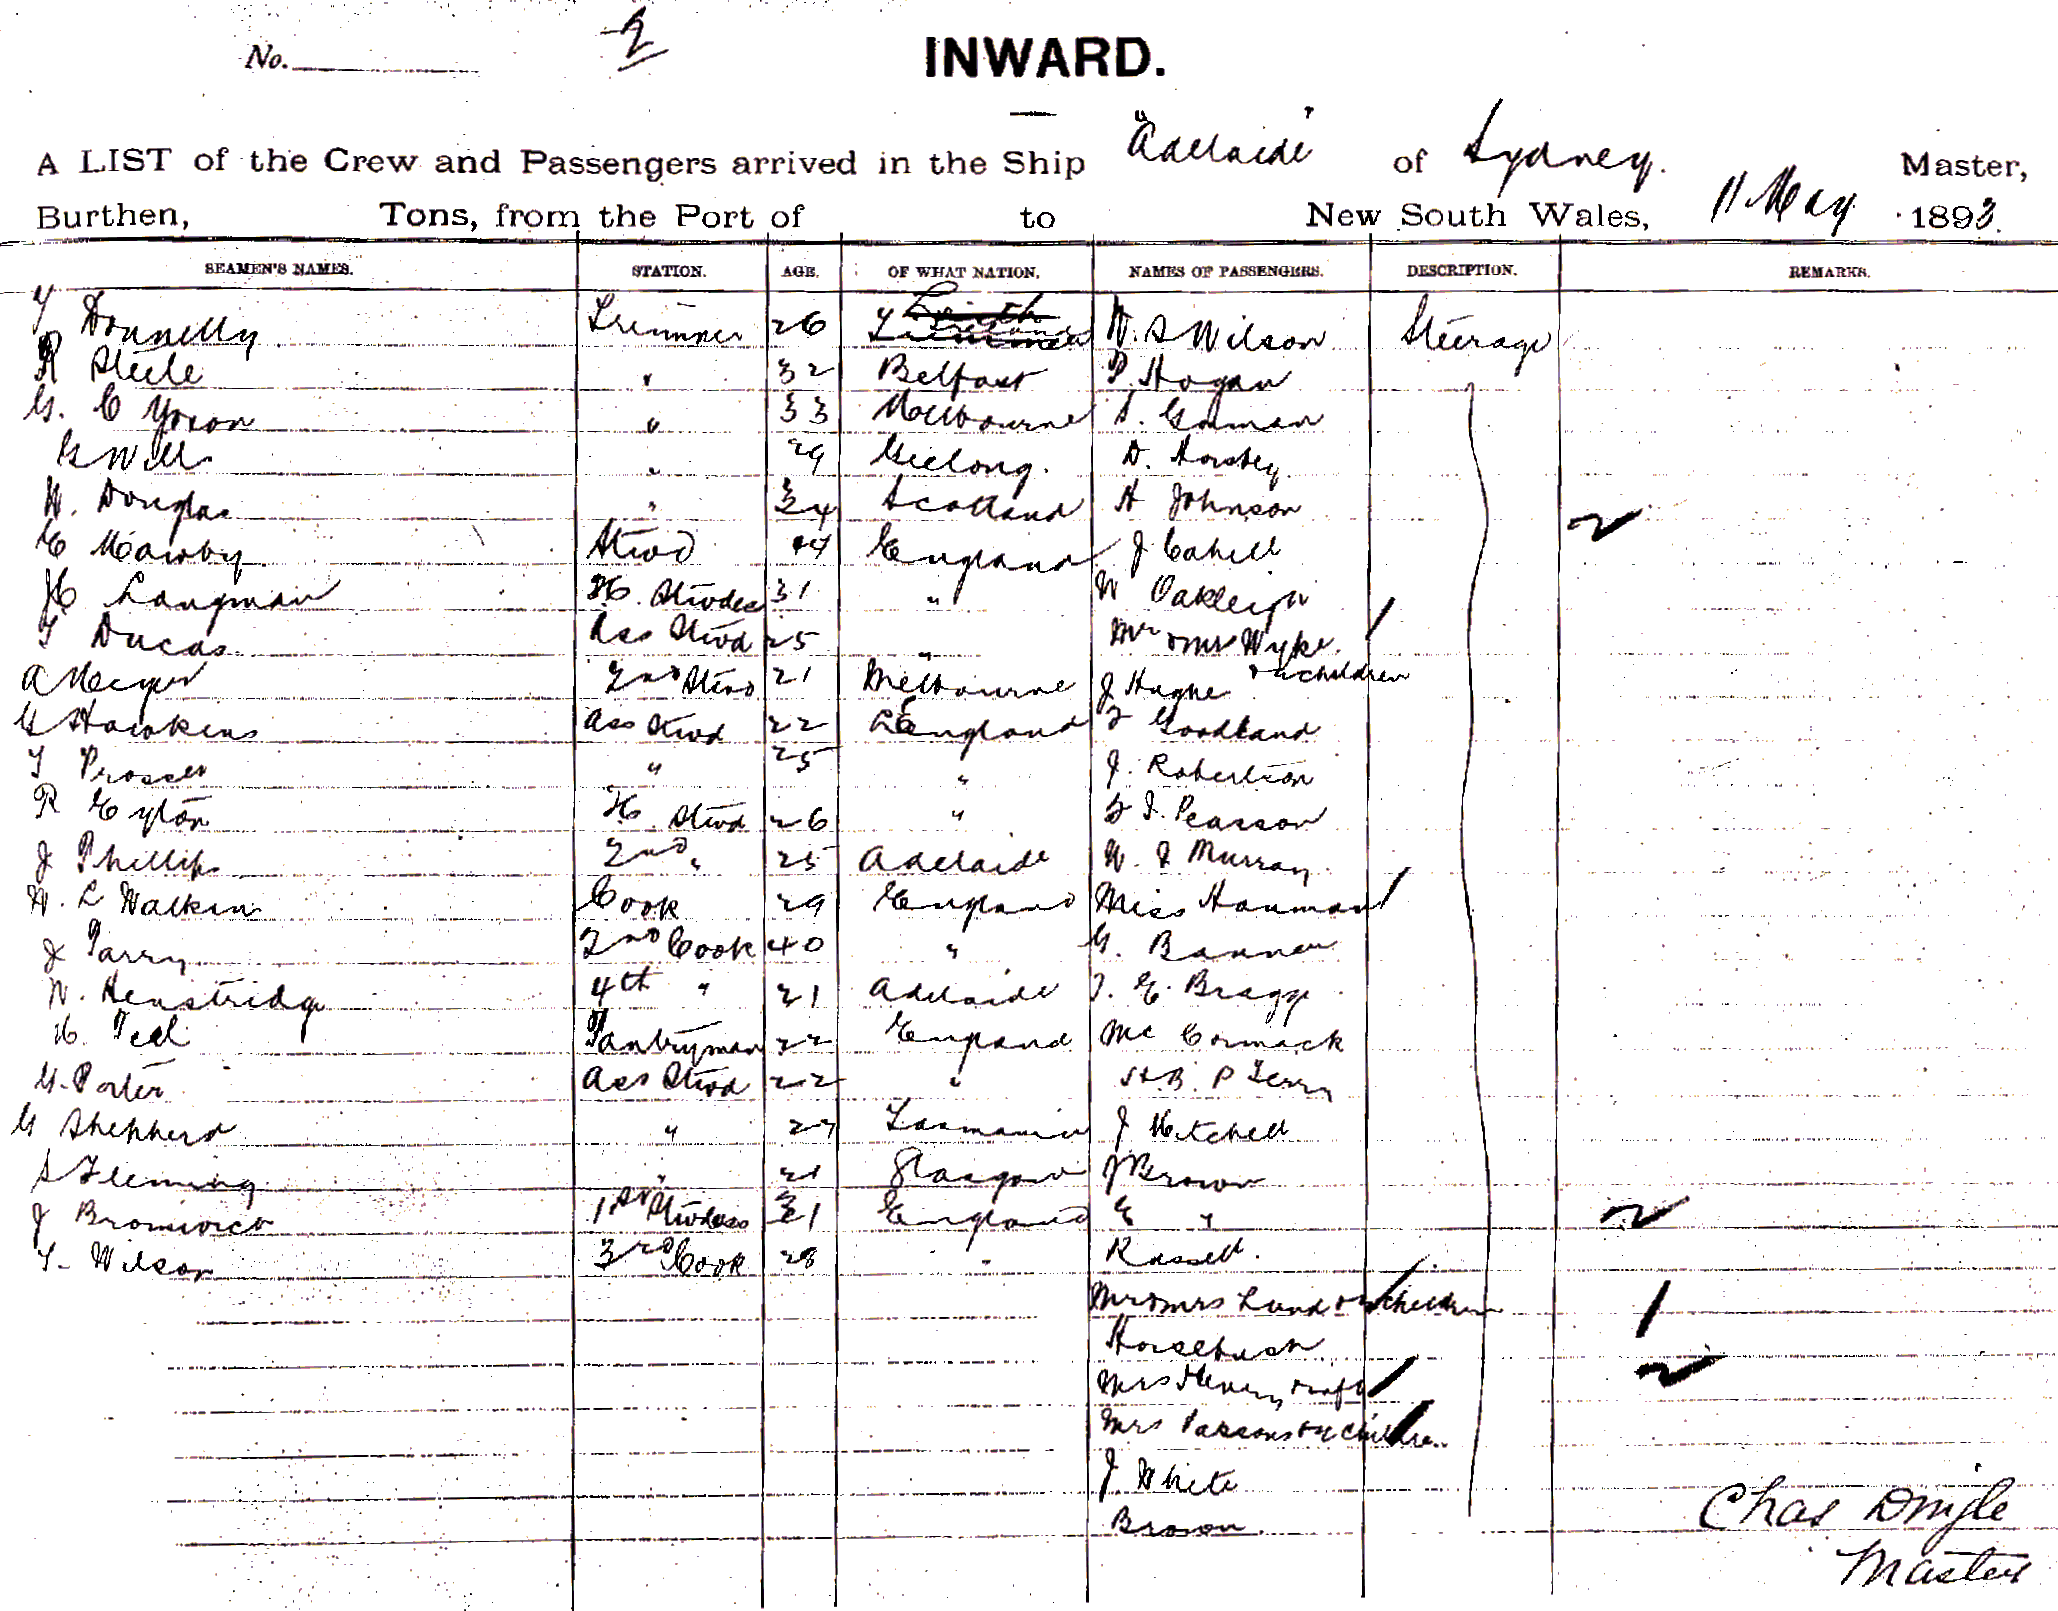 No. 2
INWARD.
A LIST of the Crew and Passengers arrived in the Ship "Adelaide" of Sydney. Master,
Burthen, Tons, from the Port of to New South Wales, 11 May 1893.
SEAMEN'S NAMES. STATION. AGE. OF WHAT NATION. NAMES OF PASSENGERS. DESCRIPTION. REMARKS.
Donnelly Trimmer 26 W. S Wilson Steerage
R Steele " 32 Belfast P. Hogan
G. C Yoxon " 33 Melbourne
G Wills " 29 Geelong. D. Horsley
W. Douglas " 34 Scotland H Johnson
E Mawby Stwd 44 England J Cahill
H Langman St. Stwdes 31 " W Oakleigh
T Ducas Ass Stwd 25 " Mr & Mrs Wyke.
A Meyer 2nd Stwd 21 Melbourne J Hughe children
G Hawkins Ass Stwd 22 England Goodland
T Prosser " 25 " J. Robertson
R Eyton St. Stwd 26 " Pearson
J Phillips 2nd " 25 Adelaide W. J Murray
W. L Walken Cook 29 England Miss Hauman
J Parry 2nd Cook 40 " G. Banner
W. Henstridge 4th " 21 Adelaide T. E. Bragg
H. Peel Pantryman 22 England Mc Cormack
G. Porter Ass Stwd 22 " P Terry
G Shepherd " 27 Tasmania J Mitchell
S Fleming " 21 Glasgow J Brown
J Bromwich 1st Stwdess 31 England E "
T. Wilson 3rd Cook 28 " Russell.
Mr & Mrs Lund children
Mrs Henry
Mrs Parsons children
J White
Brown
Chas Dingle
Master